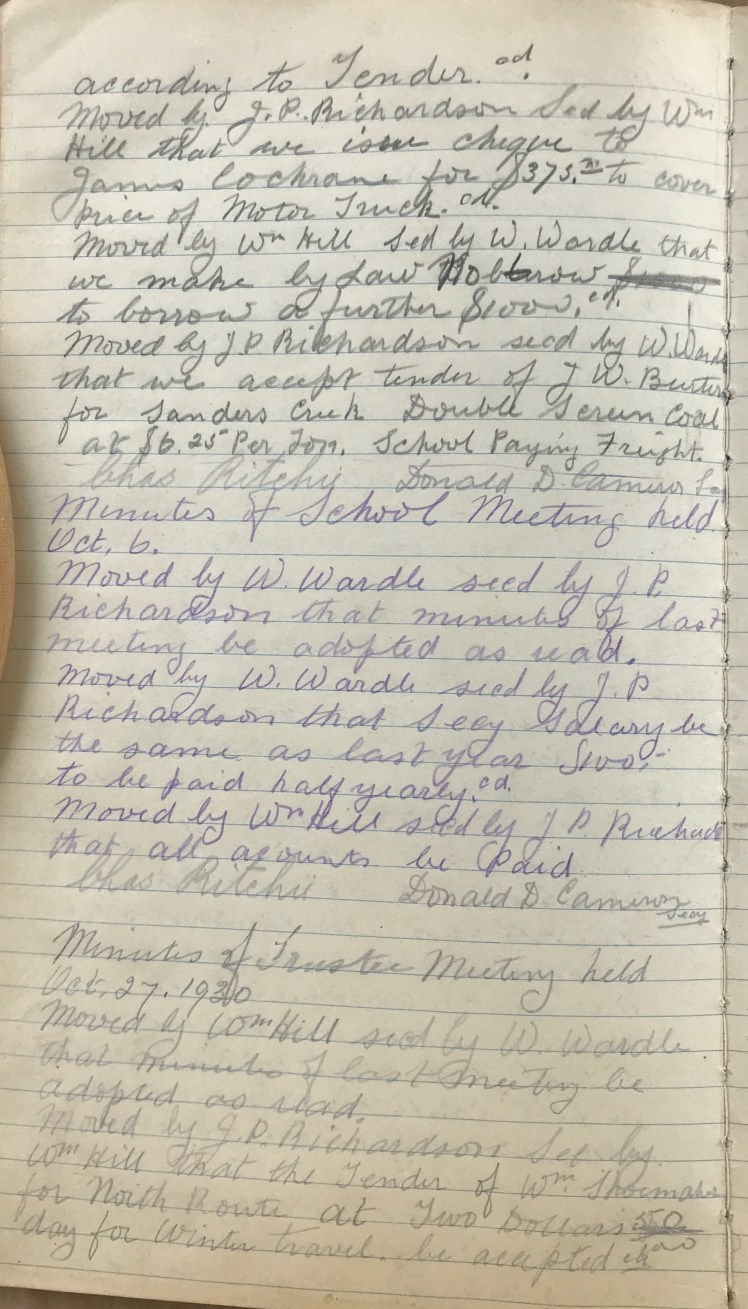 according to Tender. cd.
Moved by J. P. Richardson Secd by Wm
Hill that we issue cheque to
James Cochrane for $375.00 to cover
price of Motor Truck. cd.
Moved by Wm Hill Secd by W. Wardle that
we make by Law
to borrow a further $1000. cd.
Moved by J P Richardson secd by W. Wardle
that we accept tender of J W.
for Sanders Creek Double Screen Coal
at $6.25 Per Ton, School Paying Freight.
Chas Ritchie Donald D. Cameron
Minutes of School Meeting held
Oct, 6.
Moved by W. Wardle secd by J. P.
Richardson that minutes of last
meeting be adopted as read.
Moved by W. Wardle secd by J. P
Richardson that Secy Salary be
the same as last year $100.-
to be paid half yearly. cd.
Moved by Wm Hill secd by J P. Richard
that all acounts be Paid
Chas Ritchie Donald D. Cameron
Secy
Minutes of Trustee Meeting held
Oct, 27. 1920
Moved by Wm Hill secd by W. Wardle
that minutes of last meeting be
adopted as read.
Moved by J. P. Richardson Sec by
Wm Hill that the Tender of Wm. Shoemaker
for North Route at Two Dollars
day for Winter travel. be accepted